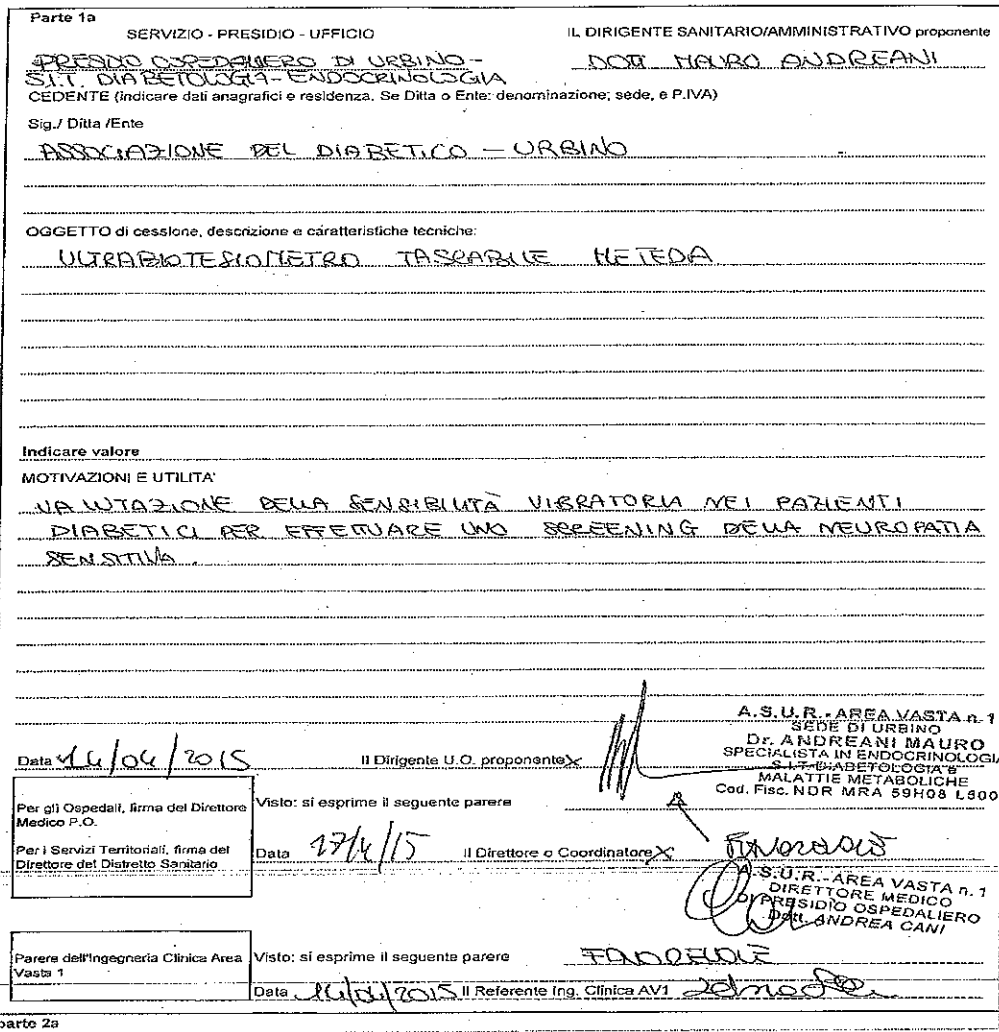 Parte 1a
SERVIZIO - PRESIDIO - UFFICIO
IL DIRIGENTE SANITARIO/AMMINISTRATIVO proponente
PRESIDIO OSPEDALIERO DI URBINO -
DOTT MAURO ANDREANI
S.I.T. DIABETOLOGIA - ENDOCRINOLOGIA
CEDENTE (indicare dati anagrafici e residenza. Se Ditta o Ente: denominazione; sede, e P.IVA)
Sig./ Ditta /Ente
ASSOCIAZIONE DEL DIABETICO - URBINO
OGGETTO di cessione, descrizione e caratteristiche tecniche:
ULTRABIOTESIOMETRO TASCABILE METEDA
Indicare valore
MOTIVAZIONI E UTILITA'
VALUTAZIONE DELLA SENSIBILITÀ VIBRATORIA NEI PAZIENTI
DIABETICI PER EFFETTUARE UNO SCREENING DELLA NEUROPATIA
SENSITIVA.
A.S.U.R. - AREA VASTA n. 1
SEDE DI URBINO
Dr. ANDREANI MAURO
SPECIALISTA IN ENDOCRINOLOGIA
S.I.T. DIABETOLOGIA e
MALATTIE METABOLICHE
Cod. Fisc. NDR MRA 59H08 L500
Data 14/04/2015 Il Dirigente U.O. proponente X
Per gli Ospedali, firma del Direttore
Medico P.O.
Per i Servizi Territoriali, firma del
Direttore del Distretto Sanitario
Visto: si esprime il seguente parere
Data 17/4/15 Il Direttore o Coordinatore X FAVOREVOLE
A.S.U.R. - AREA VASTA n. 1
DIRETTORE MEDICO
PRESIDIO OSPEDALIERO
Dott. ANDREA CANI
Parere dell'Ingegneria Clinica Area
Vasta 1
Visto: si esprime il seguente parere FAVOREVOLE
Data 2015 Il Referente Ing. Clinica AV1
parte 2a